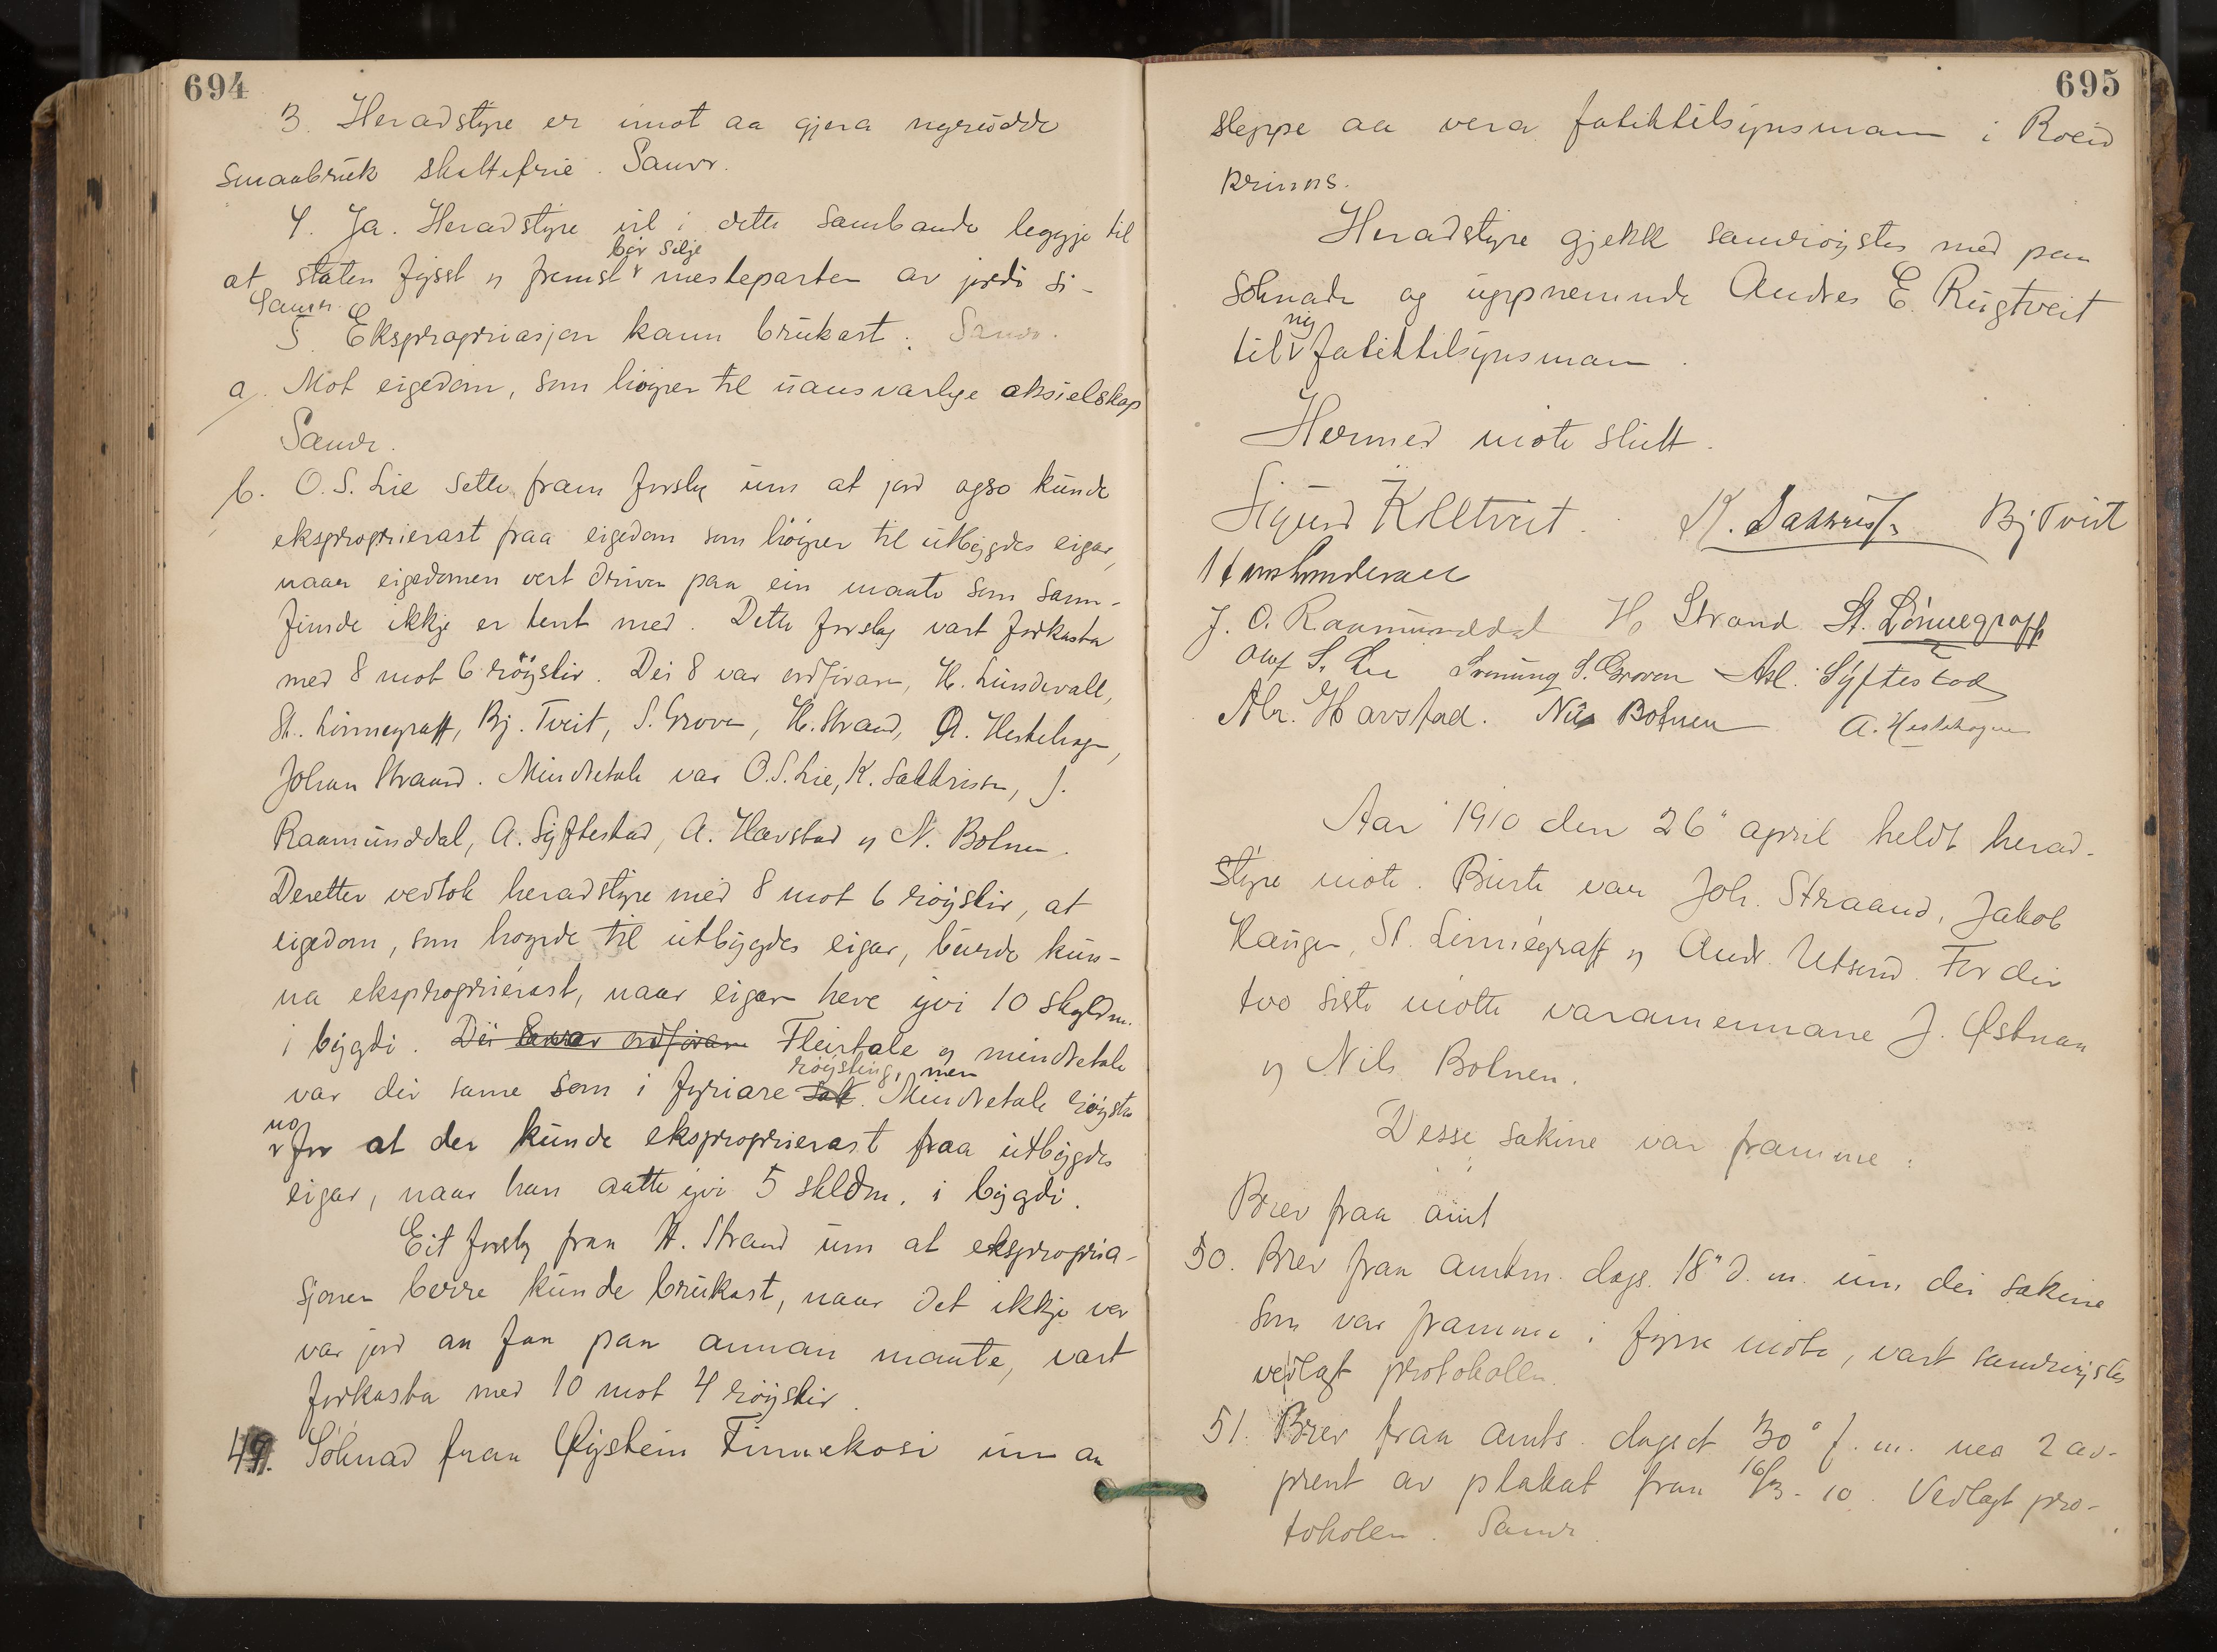 694
3. Heradstyre er imot aa gjera nyrudde
smaabruk skattefrie. Samr.
4. Ja. Heradstyre vil i dette sambande leggje til
at staten fysst og fremst bør selje mesteparten av jordi si -
Samr.
5. Ekspropriasjon kann brukast: Samr.
a. Mot eigedom, som høyrer til uansvarlege aksielskap
Samr.
b. O. S. Lie sette fram forslag um at jord ogso kunde
eksproprierast fraa eigedom som høyrer til utbygdes eigar,
naar eigedomen vert driven paa ein maate som sam-
funde ikkje er tent med. Dette forslag vart forkasta
med 8 mot 6 røyster. Dei 8 var ordføraren, H. Lundevall,
St. Linnegraff, Bj. Tveit, S. Groven, H. Strand, A. Hestehagen,
Johan Straand. Mindretale var O. S. Lie, K. Sakkrisen, J.
Raamunddal, A. Syftestad, A. Havstad og N. Bolnen.
Deretter vedtok heradstyre med 8 mot 6 røyster, at
eigedom, som høyrde til utbygdes eigar, burde kun-
na eksproprierast, naar eigar heve yvi 10 skyldm.
i bygdi. Dei 8 var ordføraren Fleirtale og mindretale
var dei same som i fyriare sak røysting, men Mindretale røyste
no for at der kunde eksproprierast fraa utbygdes
eigar, naar han aatte yvi 5 skldm. i bygdi.
Eit forslag fraa H. Strand um at ekspropria-
sjonen berre kunde brukast, naar det ikkje var
var jord aa faa paa annan maate, vart
forkasta med 10 mot 4 røyster.
49. Søknad fraa Øystein Finnekosi um aa
695
sleppe aa vera fatiktilsynsmann i Roeid
krinns.
Heradstyre gjekk samrøystes med paa
søknade og uppnemnde Andres E. Rugtveit
til ny fatiktilsynsmann.
Hermed møte slutt.
Sigurd Kelltveit. K. Sakkrisen Bj Tveit
H Lundevall
J. O. Raamunddal H Strand St. Linnegraff
Olaf S. Lie Sveinung S. Groven Asl. Syftestad
Abr. Havstad. Nils Bolnen A. Hestehagen
Aar 1910 den 26" april heldt herad-
styre møte. Burte var Joh. Straand, Jakob
Haugen, St. Linnegraff og Andr. Utsund. For dei
two siste møtte varamennane J. Østnan
og Nils Bolnen.
Desse sakine var framme:
Brev fraa amt
50. Brev fraa amtm. dags. 18" d. m. um dei sakine
som var framme i fyrre møte, vart samrøystes
vedlagt protokollen.
51. Brev fraa amts. dagset 30" f. m. med 2 av-
prent av plakat fraa 16/3 - 10. Vedlagt pro-
tokolen. Samr.